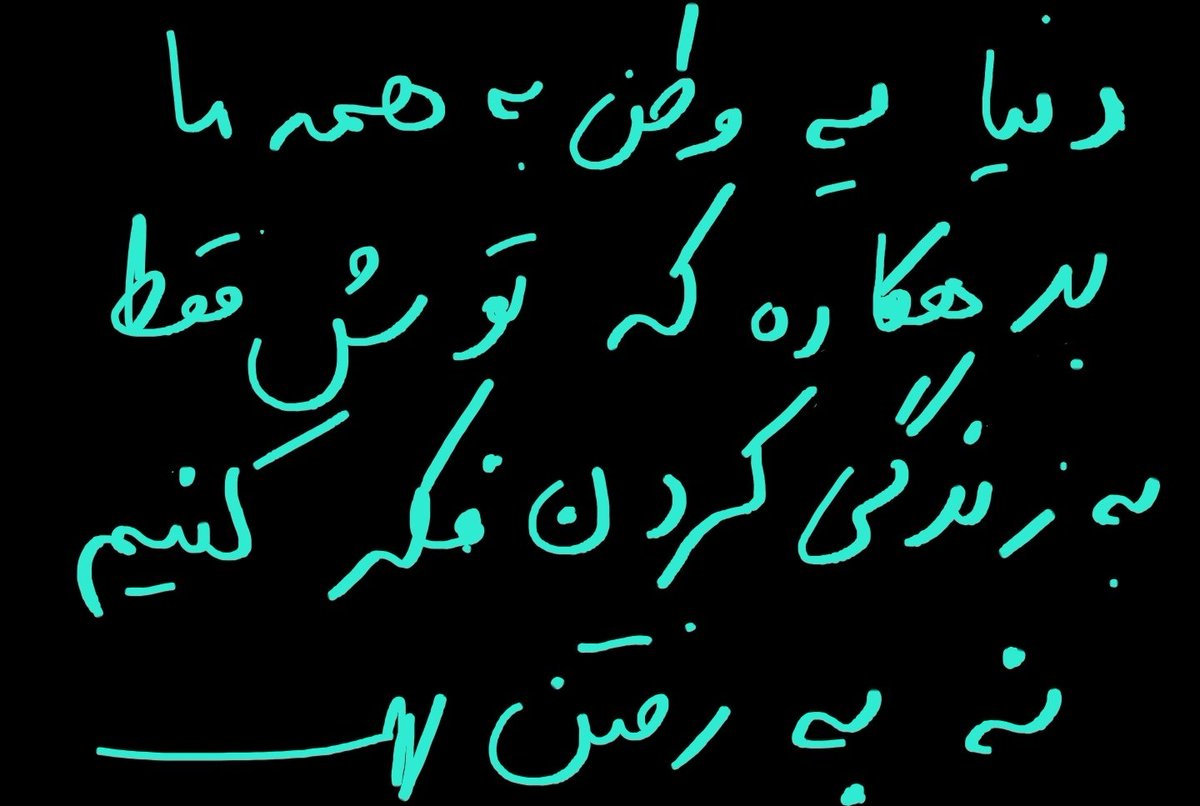 دنیا یه وطن به همه ما
بدهکاره که توش فقط
به زندگی کردن فکر کنیم
نه به رفتن